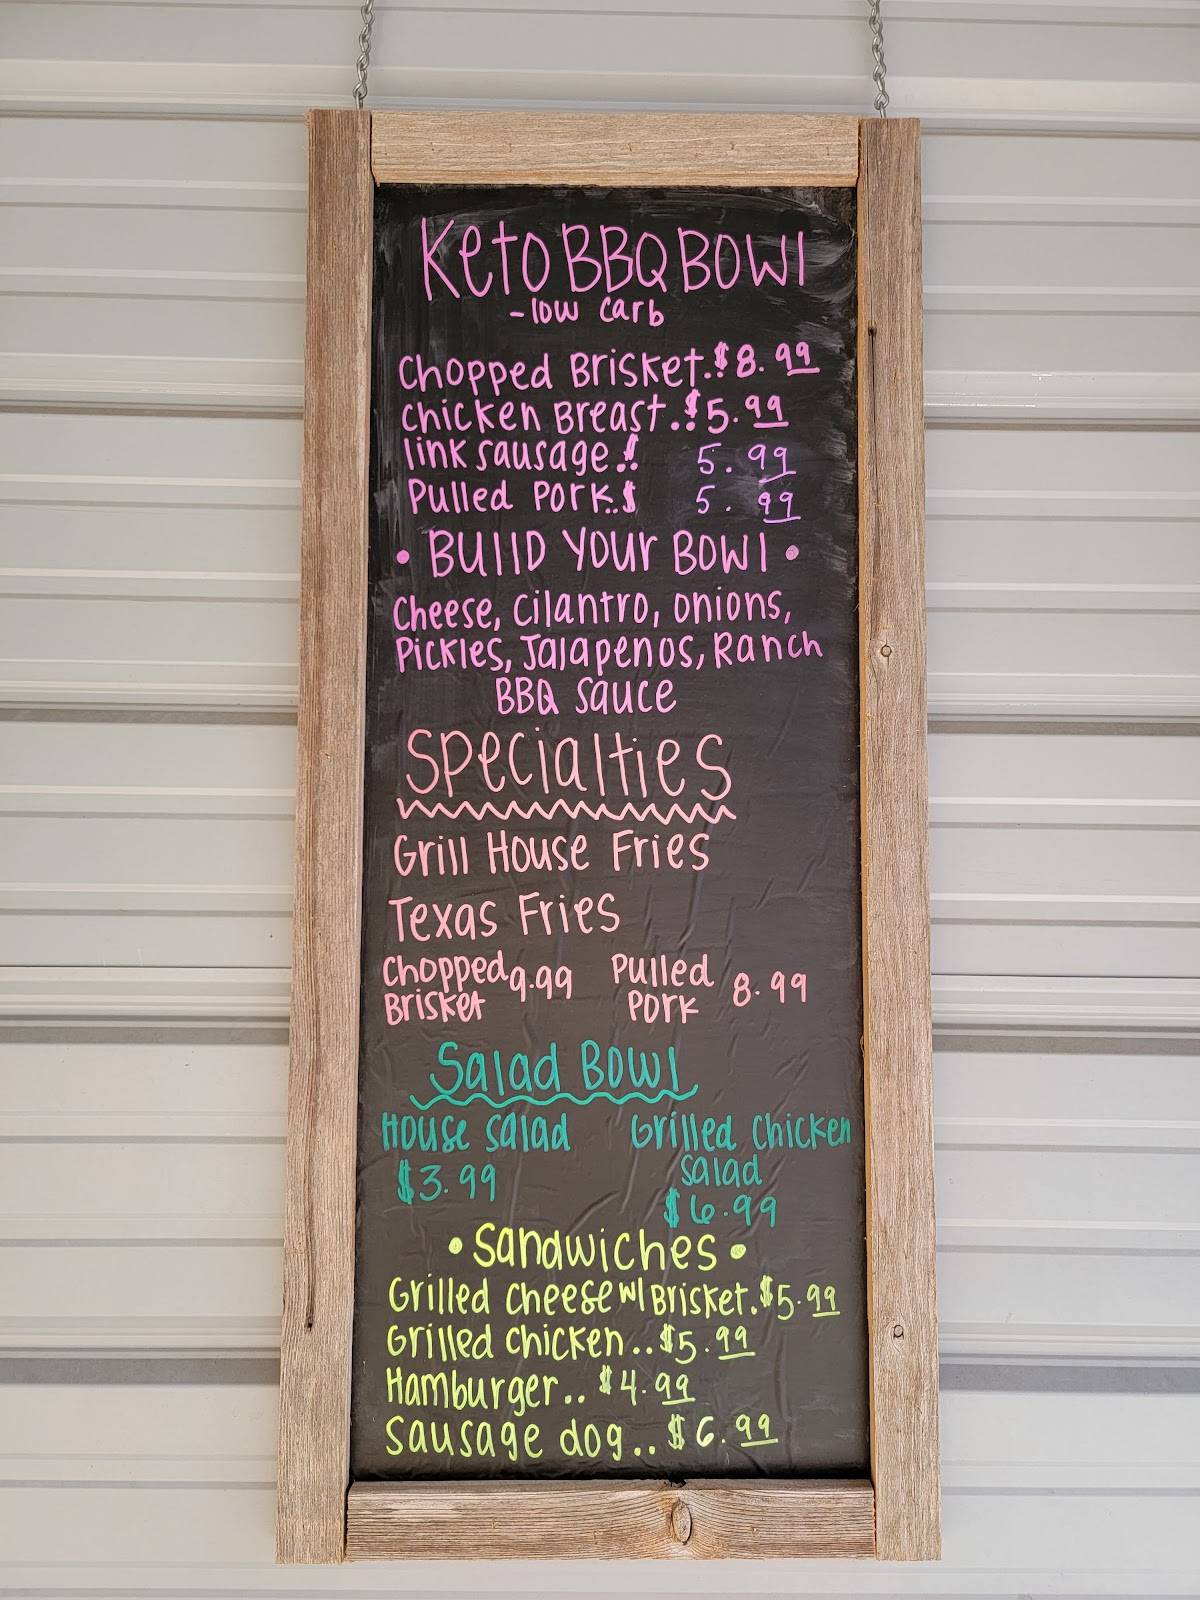 Keto BBQ Bowl
- low carb
Chopped Brisket.. $8.99
Chicken Breast.. $5.99
link sausage.. $ 5.99
Pulled Pork.. $ 5.99
• Build Your Bowl •
Cheese, Cilantro, onions,
Pickles, Jalapenos, Ranch
BBQ Sauce
Specialties
Grill House Fries
Texas Fries
Chopped Brisket 9.99 Pulled Pork 8.99
Salad Bowl
House Salad Grilled Chicken
$3.99 Salad
$6.99
• Sandwiches •
Grilled Cheese w/ Brisket. $5.99
Grilled Chicken.. $5.99
Hamburger.. $4.99
Sausage dog.. $6.99